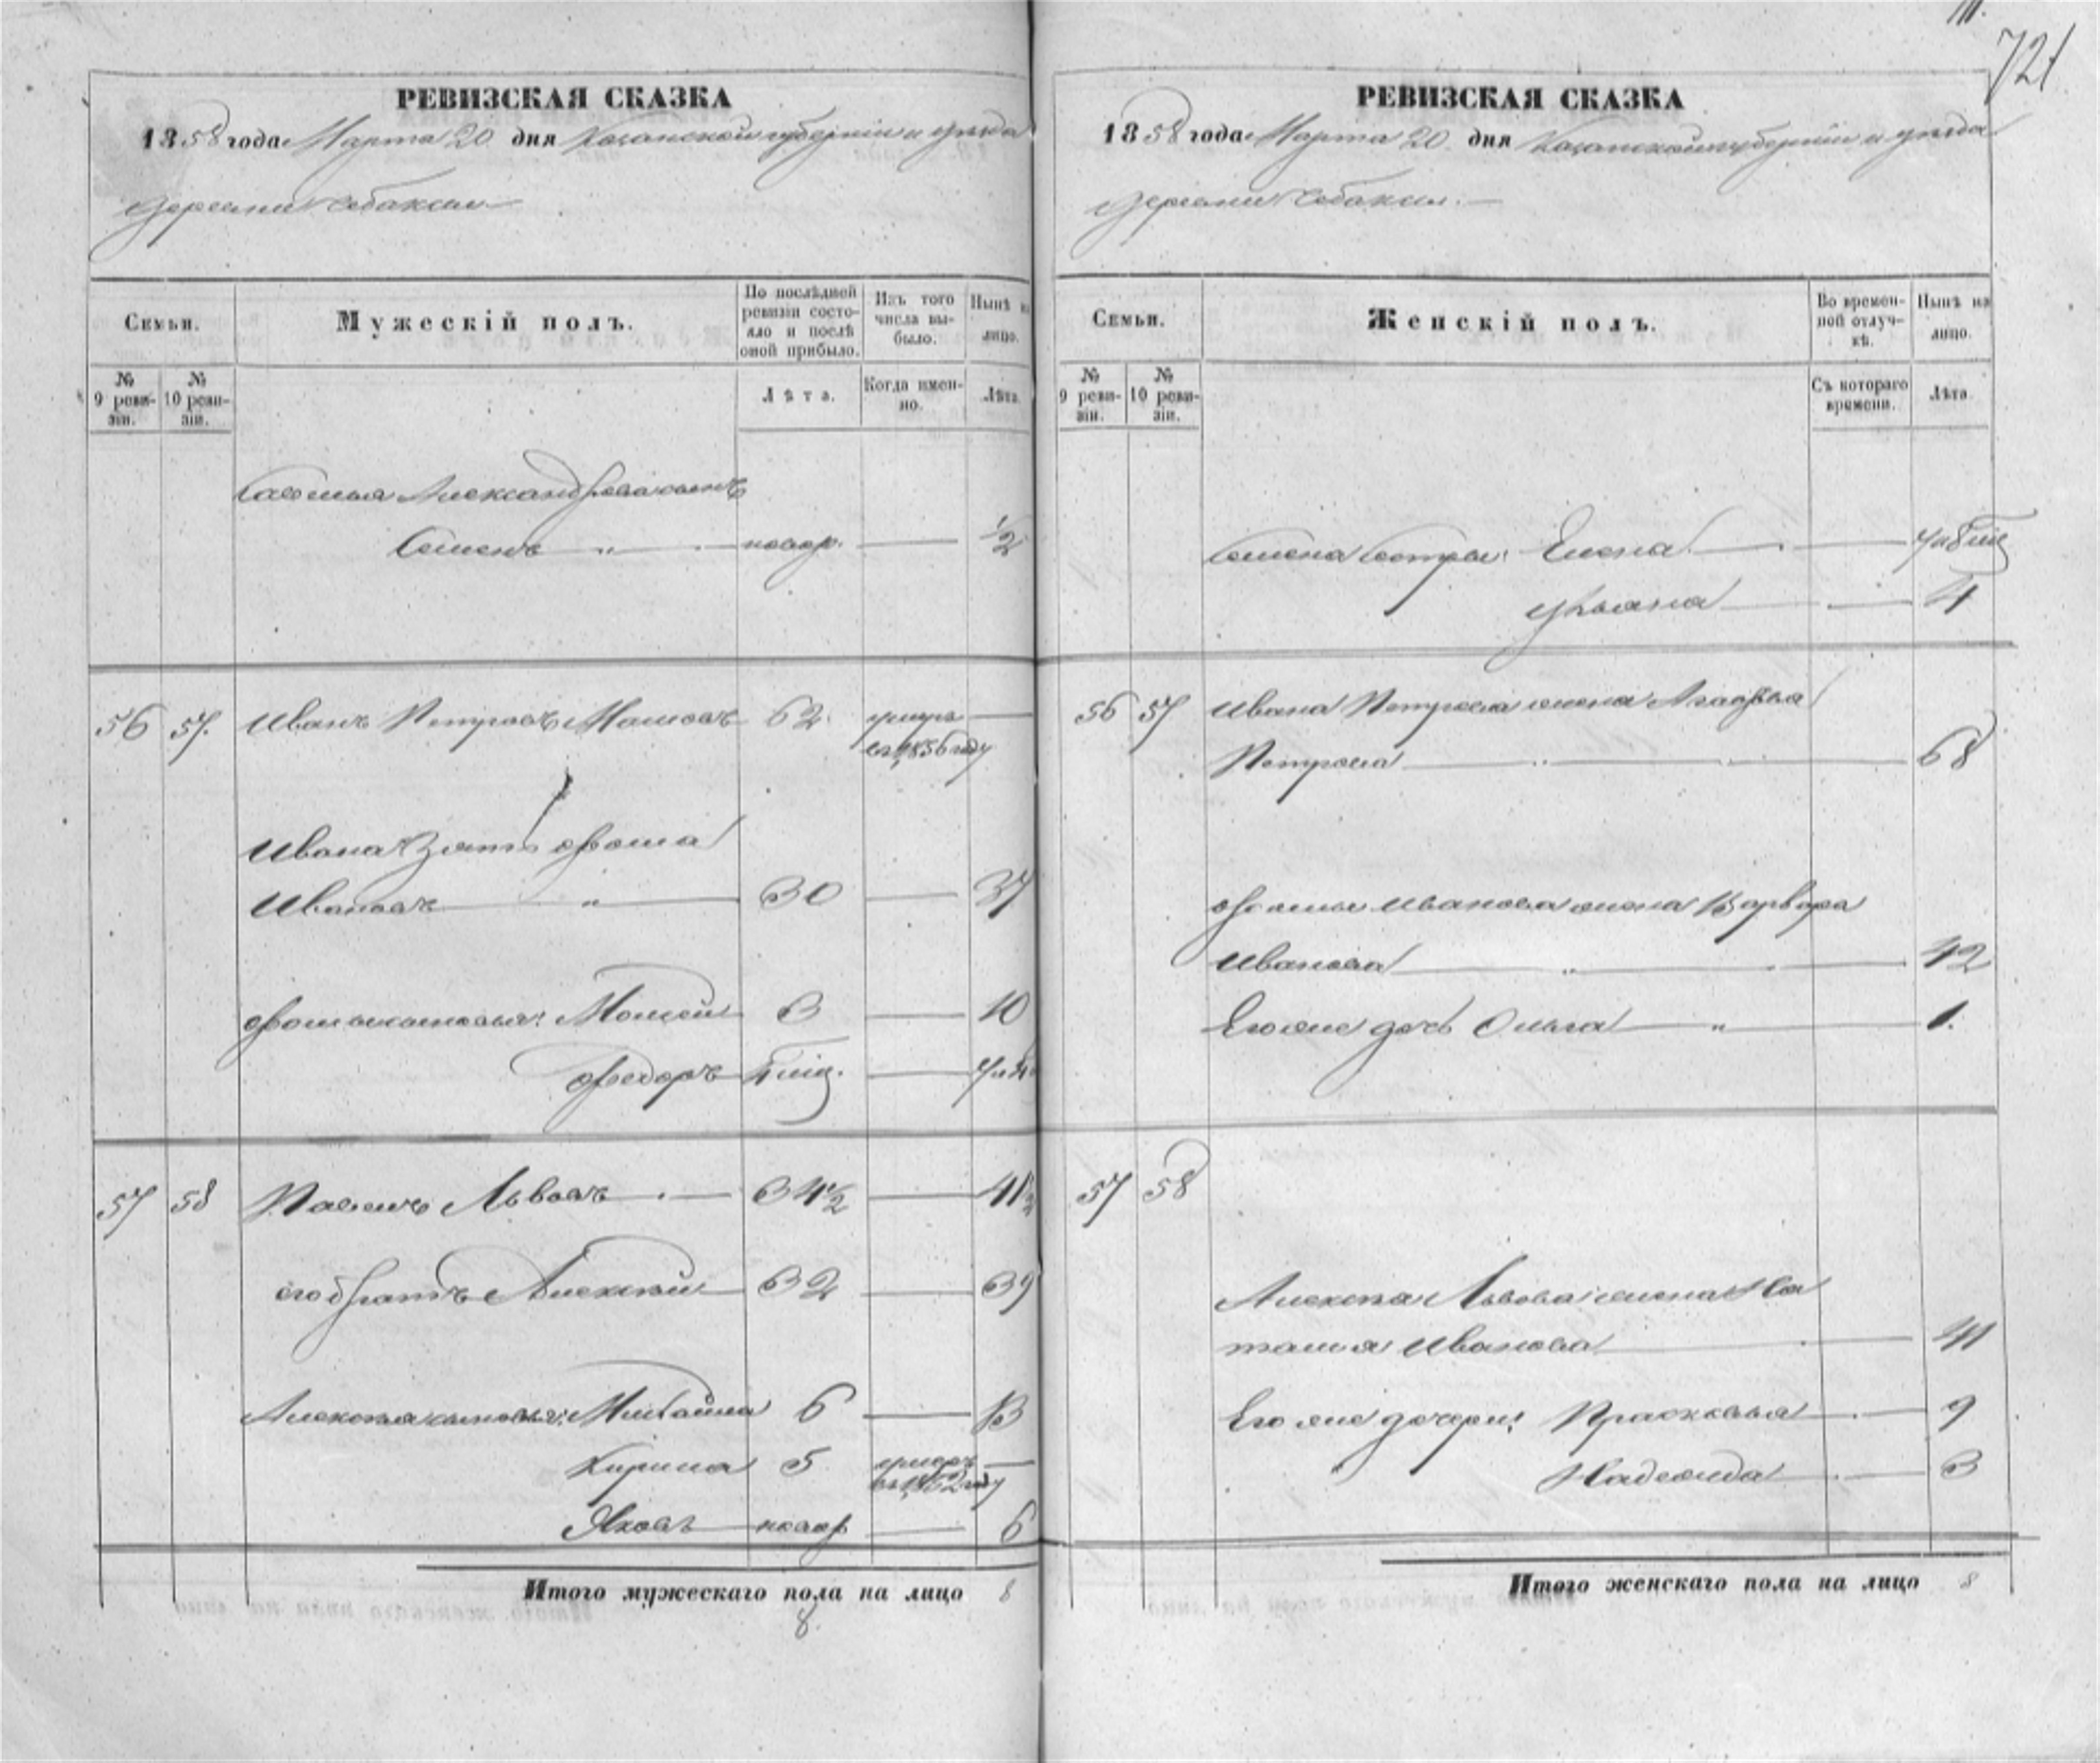 721
РЕВИЗСКАЯ СКАЗКА
1858 года Марта 20 дня Казанской губернии и уезда
деревни Чебаксы
Семьи.
Мужескій полъ.
По послѣдней ревизіи состояло и послѣ оной прибыло.
Изъ того числа выбыло.
Нынѣ на лицо.
№ 9 ревизіи.
№ 10 ревизіи.
Лѣта.
Когда именно.
Лѣта.
Александрова сынъ
Семенъ " новор. 1/2
56 57. Иванъ Петровъ 62 умеръ
въ 1856 году
Ивана зять Фома
Ивановъ " 30 37
Фомы сыновья: Моисей 3 10
Федоръ
57 58 Павелъ Львовъ 34 1/2 41 1/2
его братъ Алексѣй 32 39
Алексѣя сыновья: Михайла 6 13
Кирила 5 умеръ
въ 1852 году
Яковъ новор 6
Итого мужескаго пола на лицо 8
8
РЕВИЗСКАЯ СКАЗКА
1858 года Марта 20 дня Казанской губерніи и уезда
деревни Чебаксы.
Семьи.
Женскій полъ.
Во временной отлучкѣ.
Нынѣ на лицо.
№ 9 ревизіи.
№ 10 ревизіи.
Съ котораго времени.
Лѣта.
Семена сестры: Елена
Ульяна 4
56 57 Ивана Петрова жена Агафья
Петрова 68
Фомы Иванова жена Варвара
Иванова 42
Его же дочь Ольга " 1.
57 58
Алексѣя Львова жена На
талья Иванова 41
Его же дочери: Прасковья 9
Надежда 3
Итого женскаго пола на лицо 8